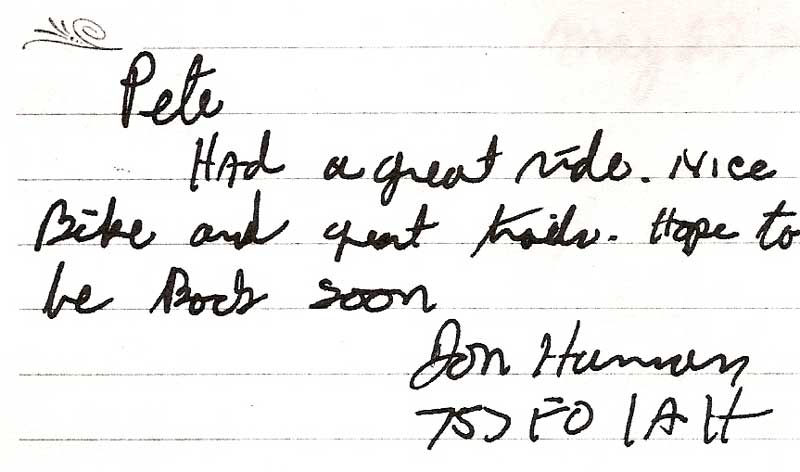 Pete
HAd a great ride. Nice
Bike and great trails. Hope to
be Back soon
Don
757 FO IAH